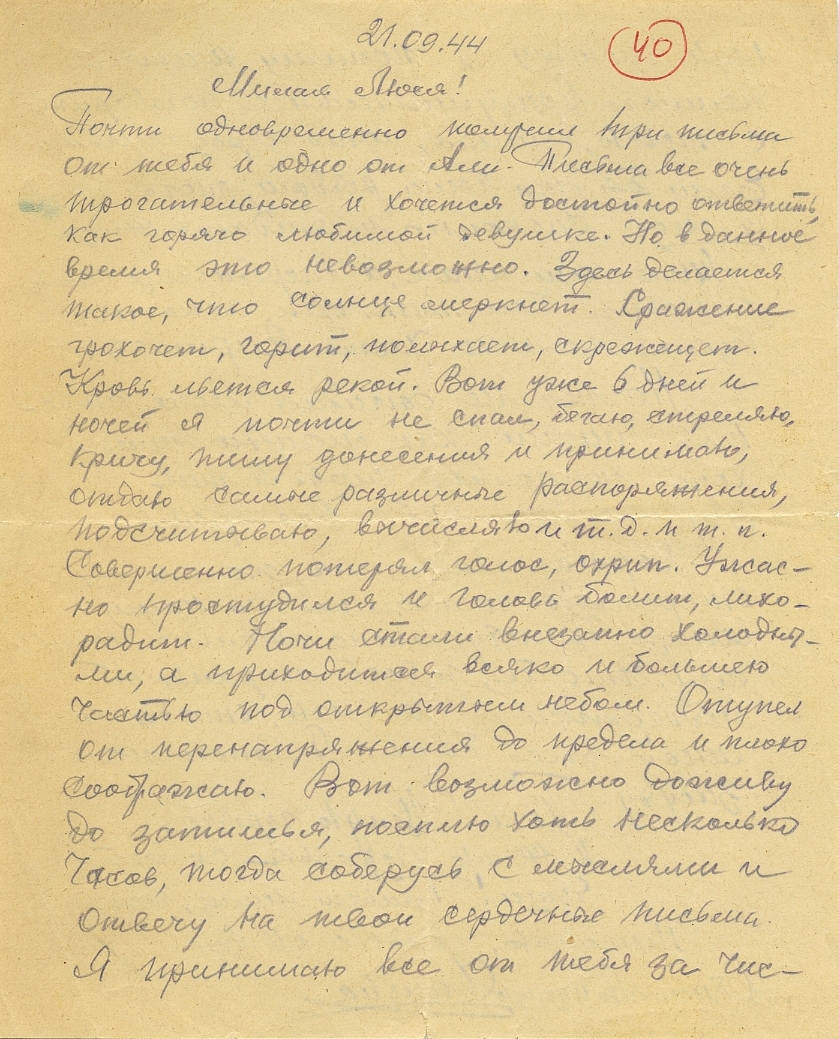 21.09.44
40
Милая Люся!
Почти одновременно получил три письма
от тебя и одно от Али. Письма все очень
трогательные и хочется достойно ответить,
как горячо любимой девушке. Но в данное
время это невозможно. Здесь делается
такое, что солнце меркнет. Сражение
грохочет, горит, полыхает, скрежещет.
Кровь льется рекой. Вот уже 6 дней и
ночей я почти не спал, бегаю, стреляю,
кричу, пишу донесения и принимаю,
отдаю самые различные распоряжения,
подсчитываю, вычисляю и т.д. и т.п.
Совершенно потерял голос, охрип. Ужас-
но простудился и голова болит, лихо-
радит. Ночи стали внезапно холодны-
ми, а приходится всяко и большею
частью под открытым небом. Отупел
от перенапряжения до предела и плохо
соображаю. Вот возможно доживу
до затишья, посплю хоть несколько
часов, тогда соберусь с мыслями и
отвечу на твои сердечные письма.
Я принимаю все от тебя за чис-